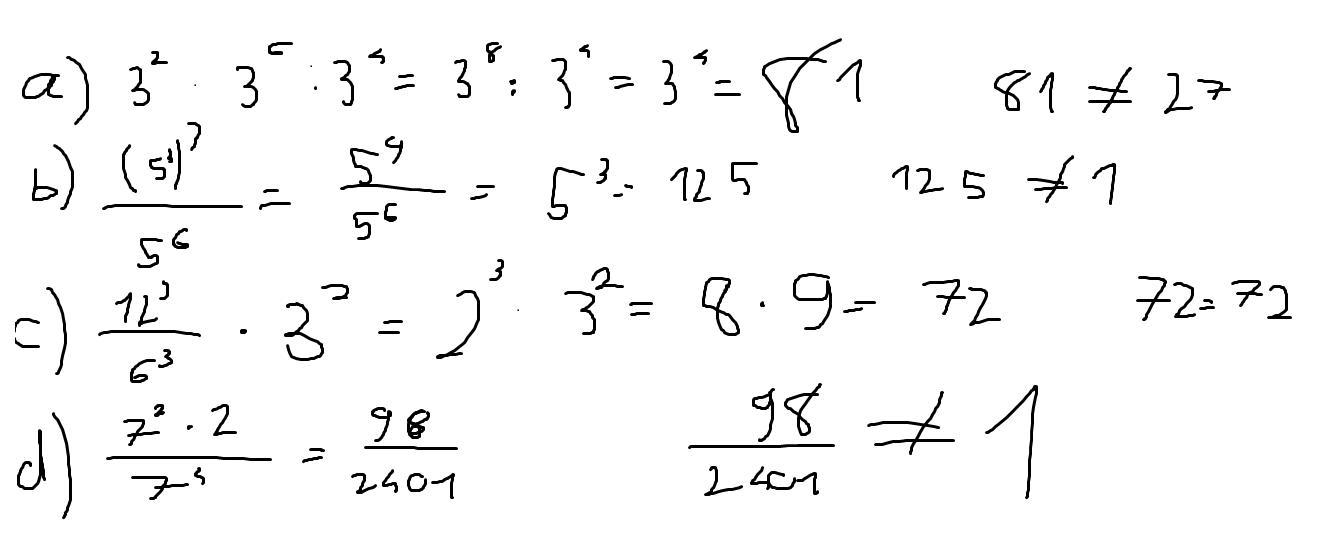 a) 3² · 3⁵ : 3⁴ = 3⁸ : 3⁴ = 3⁴ = 81 81 ≠ 27
b) (5³)³ / 5⁶ = 5⁹ / 5⁶ = 5³ = 125 125 ≠ 1
c) 12³ / 6³ · 3² = 2³ · 3² = 8 · 9 = 72 72 = 72
d) 7² · 2 / 7⁴ = 98 / 2401 98 / 2401 ≠ 1